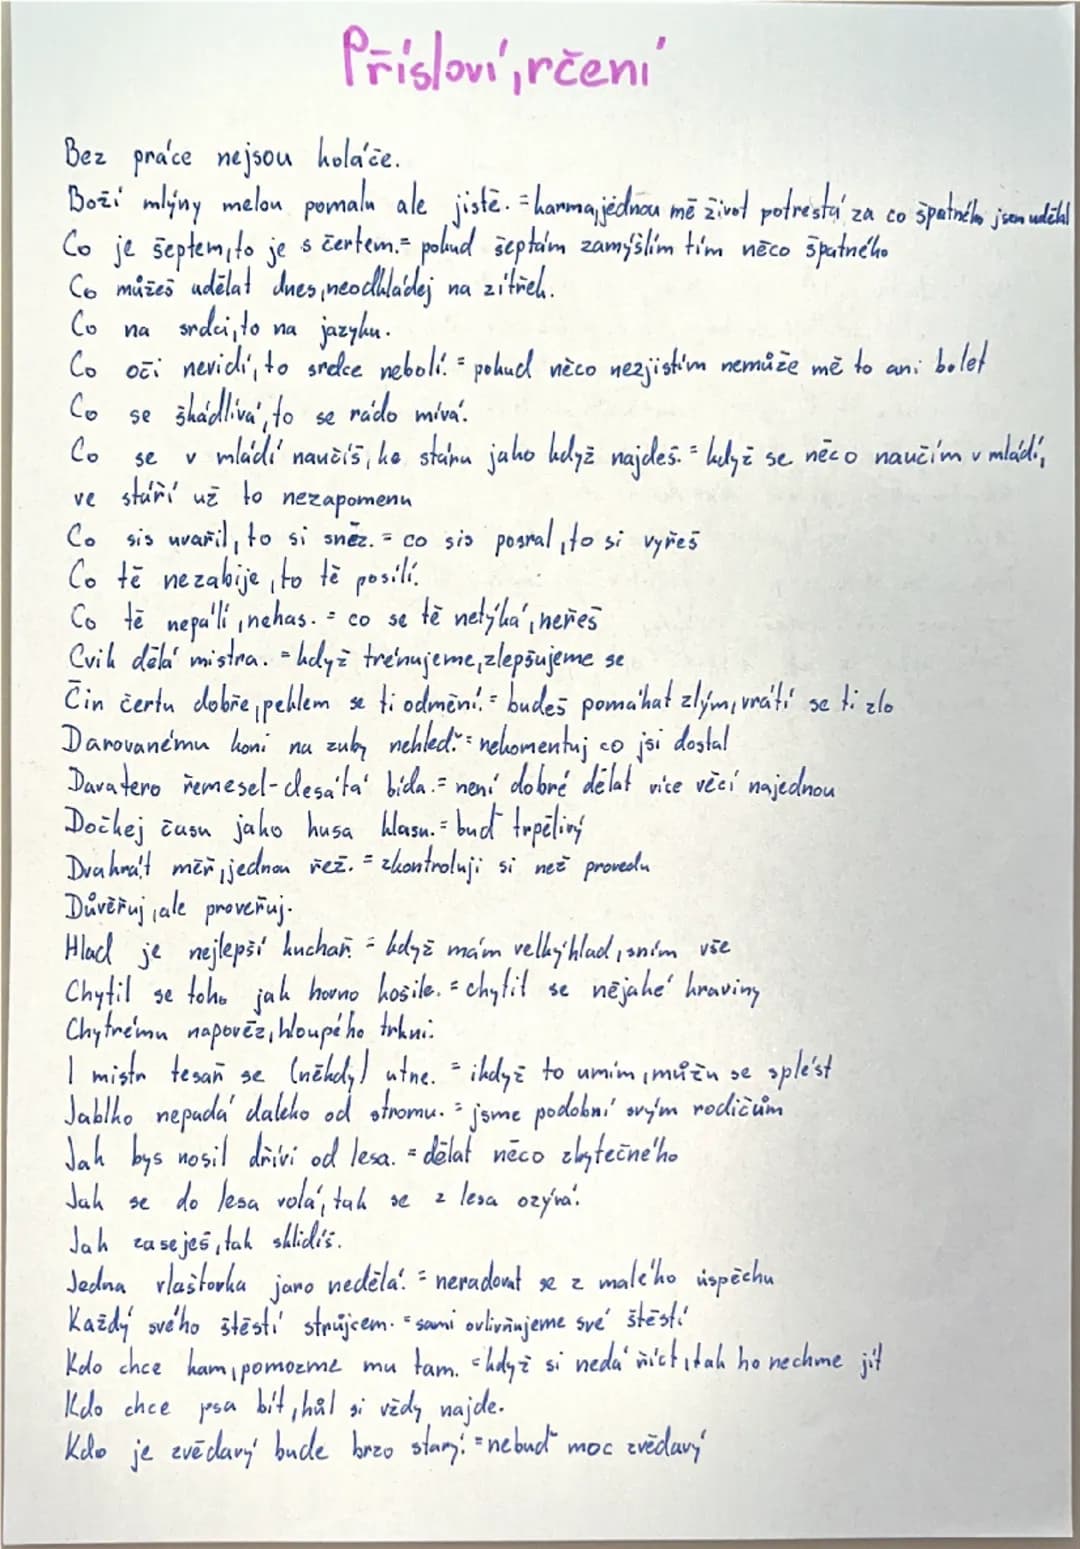 Přísloví, rčení
Bez práce nejsou koláče.
Boží mlýny melou pomalu ale jistě. = karma, jednou mě život potrestá za co špatného jsem udělal
Co je šeptem, to je s čertem. = pokud šeptám zamýšlím tím něco špatného
Co můžeš udělat dnes, neodkládej na zítřek.
Co na srdci, to na jazyku.
Co oči nevidí, to srdce nebolí. = pokud něco nezjistím nemůže mě to ani bolet
Co se škádlívá, to se rádo mívá.
Co se v mládí naučíš, ke stáru jako když najdeš. = když se něco naučím v mládí,
ve stáří už to nezapomenu
Co sis uvařil, to si sněz. = co sis posral, to si vyřeš
Co tě nezabije, to tě posílí.
Co tě nepálí, nehas. = co se tě netýká, neřeš
Cvik dělá mistra. = když trénujeme, zlepšujeme se
Čin čertu dobře, peklem se ti odmění. = budeš pomáhat zlým, vrátí se ti zlo
Darovanému koni na zuby nehleď. = nekomentuj co jsi dostal
Davatero řemesel - desátá bída. = není dobré dělat více věcí najednou
Dočkej času jako husa klasu. = buď trpělivý
Dvakrát měř, jednou řež. = zkontroluji si než provedu
Důvěřuj, ale prověřuj.
Hlad je nejlepší kuchař. = když mám velký hlad, sním vše
Chytil se toho jak hovno košile. = chytit se nějaké kraviny
Chytrému napověz, hloupého trkni.
I mistr tesař se (někdy) utne. = ikdyž to umím, můžu se splést
Jablko nepadá daleko od stromu. = jsme podobní svým rodičům
Jak bys nosil dříví od lesa. = dělat něco zbytečného
Jak se do lesa volá, tak se z lesa ozývá.
Jak zaseješ, tak sklidíš.
Jedna vlaštovka jaro nedělá. = neradovat se z malého úspěchu
Každý svého štěstí strůjcem. = sami ovlivňujeme své štěstí
Kdo chce kam, pomozme mu tam. = když si nedá říct, tak ho nechme jít
Kdo chce psa bít, hůl si vždy najde.
Kdo je zvědavý bude brzo starý. = nebuď moc zvědavý